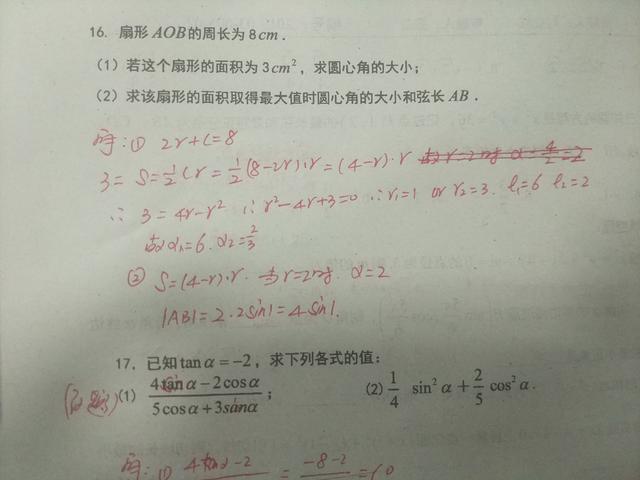 16. 扇形 AOB 的周长为 8cm.
(1) 若这个扇形的面积为 3cm², 求圆心角的大小;
(2) 求该扇形的面积取得最大值时圆心角的大小和弦长 AB.
解: ① 2r+l=8
3=S=½lr=½(8-2r)·r=(4-r)·r 故r=2时 α=4/2=2
∴ 3=4r-r² ∴r²-4r+3=0 ∴r₁=1 or r₂=3. l₁=6 l₂=2
故α₁=6. α₂=2/3
② S=(4-r)·r. 当r=2时. α=2
|AB|=2·2sin1=4sin1.
17. 已知 tanα=-2, 求下列各式的值:
(1) (4sinα-2cosα)/(5cosα+3sinα); (2) 1/4 sin²α+2/5 cos²α.
解: ① 4tanα-2 = -8-2 =10